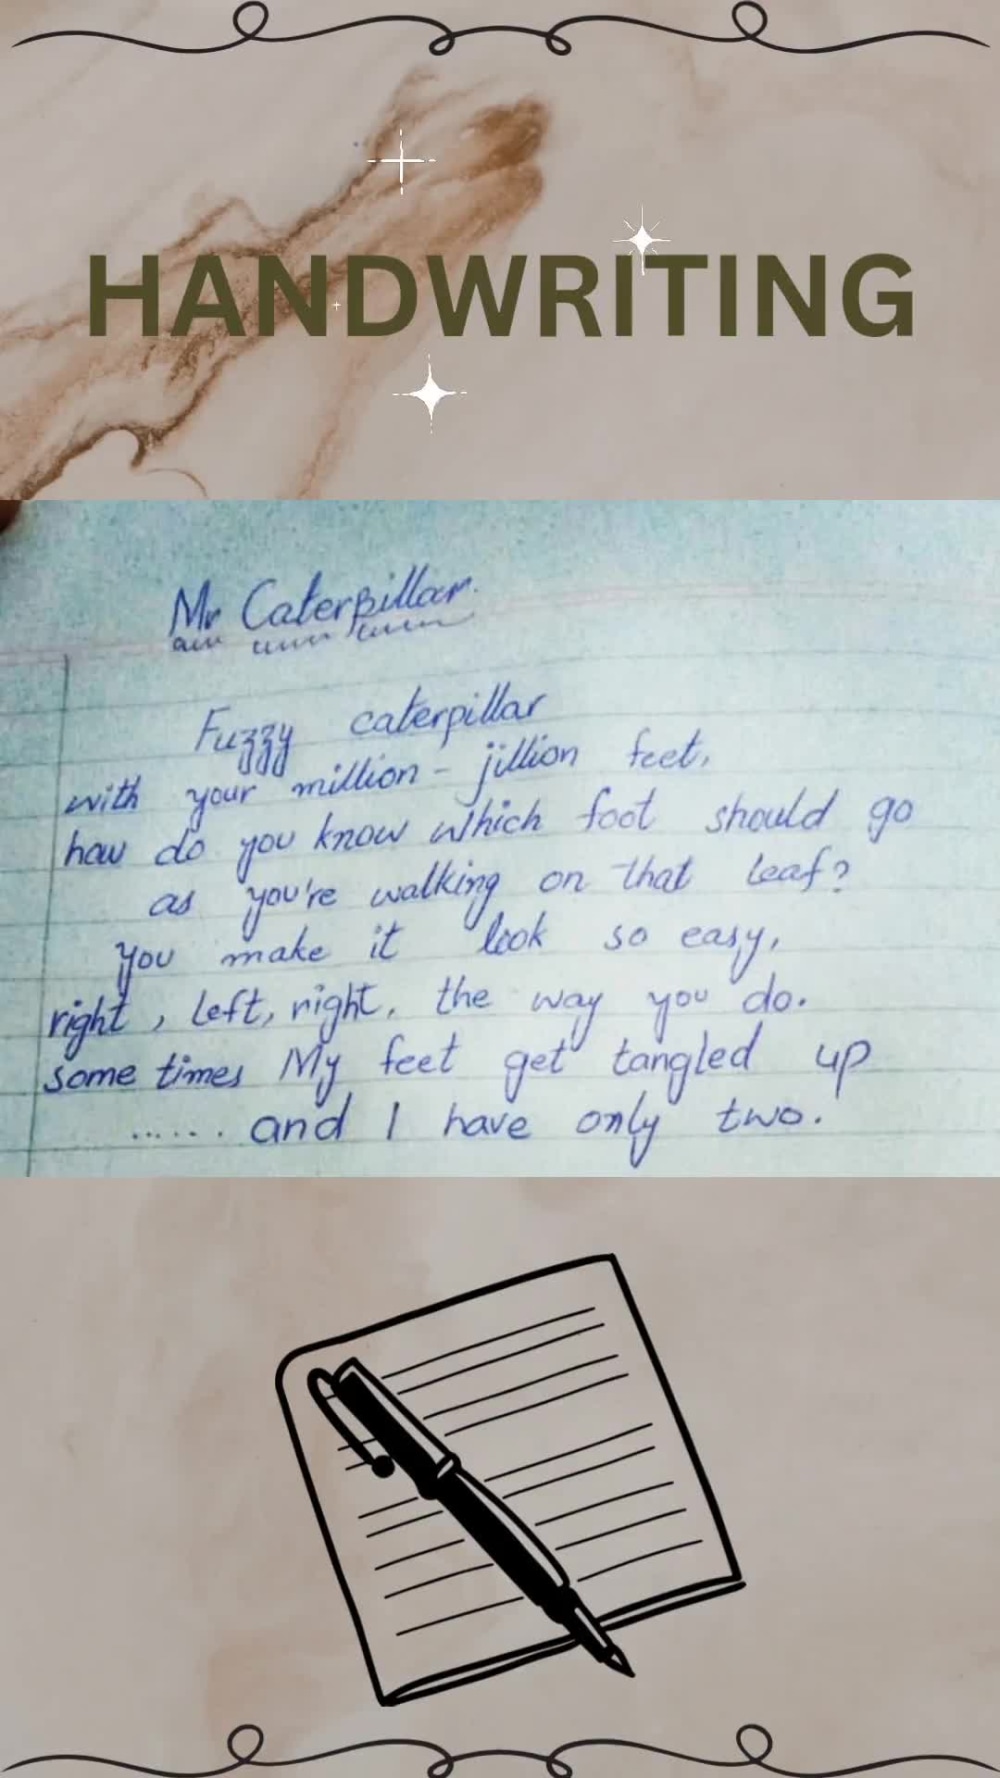 HANDWRITING
Mr Caterpillar.
Fuzzy caterpillar
with your million - jillion feet,
how do you know which foot should go
as you're walking on that leaf?
you make it look so easy,
right, left, right, the way you do.
some times My feet get tangled up
...... and I have only two.